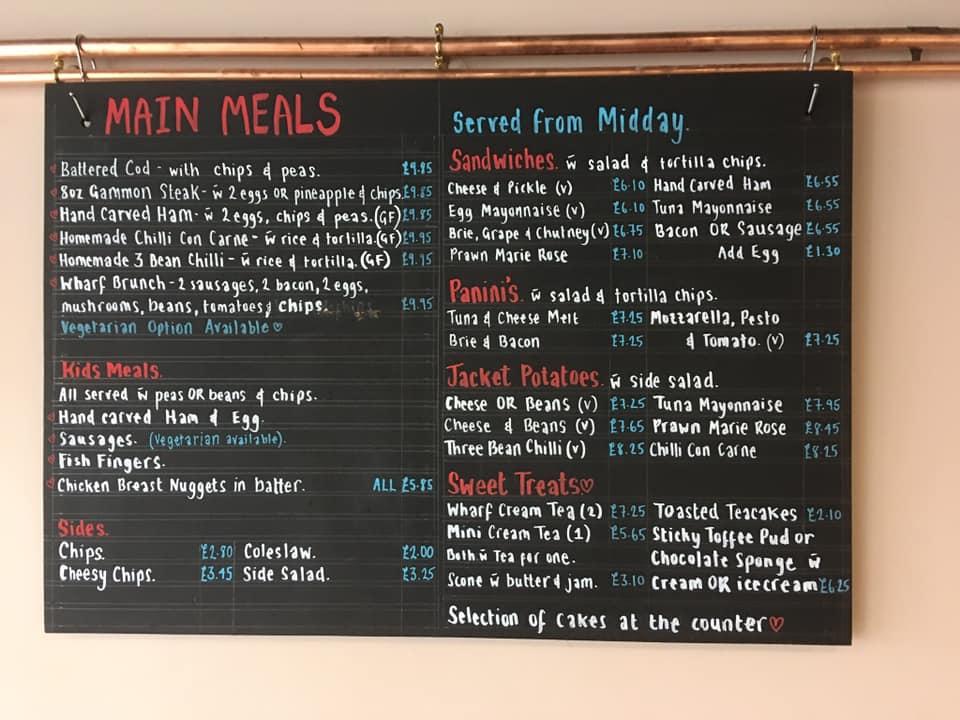 MAIN MEALS
Battered Cod - with chips & peas. £9.85
8oz Gammon Steak - w̄ 2 eggs OR pineapple & chips. £9.85
Hand Carved Ham - w̄ 2 eggs, chips & peas. (GF) £9.85
Homemade Chilli Con Carne - w̄ rice & tortilla. (GF) £9.95
Homemade 3 Bean Chilli - w̄ rice & tortilla. (GF) £9.95
Wharf Brunch - 2 sausages, 2 bacon, 2 eggs,
mushrooms, beans, tomatoes & chips. £9.95
Vegetarian Option Available ♡
Kids Meals.
All served w̄ peas OR beans & chips.
Hand carved Ham & Egg.
Sausages. (Vegetarian available).
Fish Fingers.
Chicken Breast Nuggets in batter. ALL £5.85
Sides.
Chips. £2.80 Coleslaw. £2.00
Cheesy Chips. £3.45 Side Salad. £3.25
Served from Midday.
Sandwiches. w̄ salad & tortilla chips.
Cheese & Pickle (v) £6.10 Hand Carved Ham £6.55
Egg Mayonnaise (v) £6.10 Tuna Mayonnaise £6.55
Brie, Grape & Chutney (v) £6.75 Bacon OR Sausage £6.55
Prawn Marie Rose £7.10 Add Egg £1.30
Panini's. w̄ salad & tortilla chips.
Tuna & Cheese Melt £7.25 Mozzarella, Pesto
Brie & Bacon £7.25 & Tomato. (v) £7.25
Jacket Potatoes. w̄ side salad.
Cheese OR Beans (v) £7.25 Tuna Mayonnaise £7.95
Cheese & Beans (v) £7.65 Prawn Marie Rose £8.45
Three Bean Chilli (v) £8.25 Chilli Con Carne £8.25
Sweet Treats ♡
Wharf Cream Tea (2) £7.25 Toasted Teacakes £2.10
Mini Cream Tea (1) £5.65 Sticky Toffee Pud or
Both w̄ Tea for one. Chocolate Sponge w̄
Scone w̄ butter & jam. £3.10 Cream OR icecream £6.25
Selection of cakes at the counter ♡